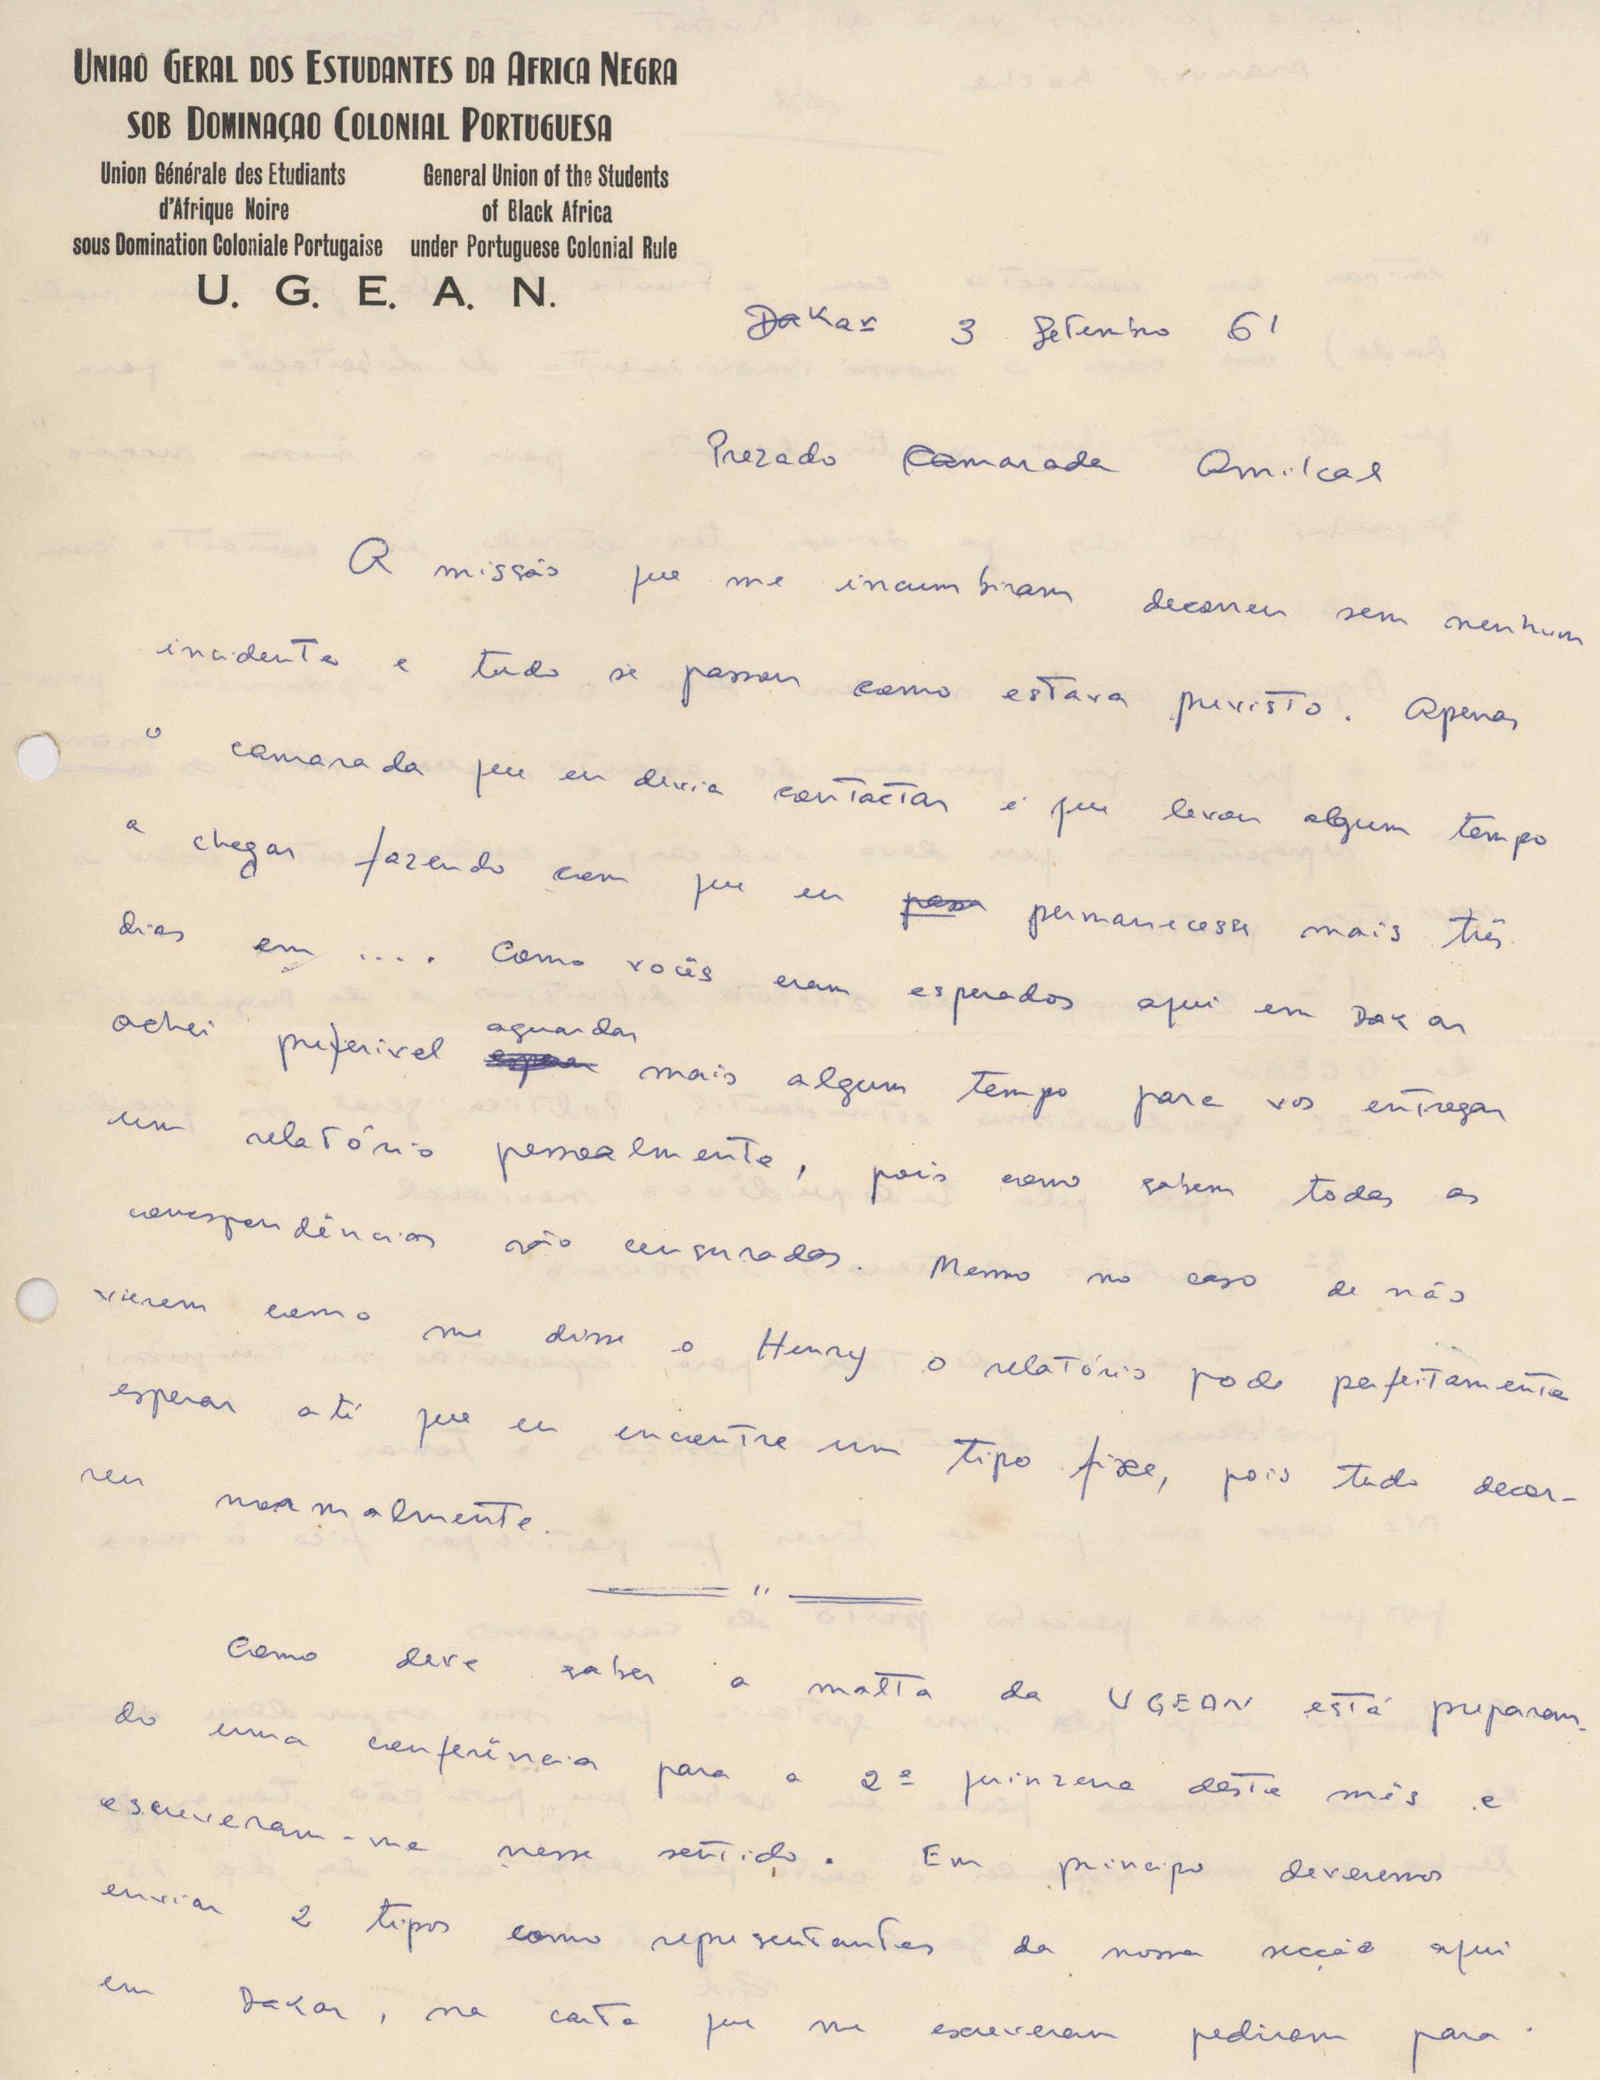 UNIAO GERAL DOS ESTUDANTES DA AFRICA NEGRA
SOB DOMINAÇAO COLONIAL PORTUGUESA
Union Générale des Etudiants
d'Afrique Noire
sous Domination Coloniale Portugaise
General Union of the Students
of Black Africa
under Portuguese Colonial Rule
U. G. E. A. N.
Dakar 3 Setembro 61
Prezado Camarada Amilcal
A missão que me incumbiram decorreu sem nenhum
incidente e tudo se passou como estava previsto. Apenas
o camarada que eu devia contactar é que levou algum tempo
a chegar fazendo com que eu permanecesse mais três
dias em .... Como vocês eram esperados aqui em Dakar
achei preferivel aguardar mais algum tempo para vos entregar
um relatório pessoalmente, pois como sabem todas as
correspondências são censuradas. Mesmo no caso de não
virem como me disse o Henry o relatório pode perfeitamente
esperar até que eu encontre um tipo fixe, pois tudo decor-
reu normalmente.
"
Como deve saber a malta da UGEAN está preparan-
do uma conferência para a 2ª quinzena deste mês e
escreveram-me nesse sentido. Em principo deveremos
enviar 2 tipos como representantes da nossa secção aqui
em Dakar, na carta que me escreveram pediram para